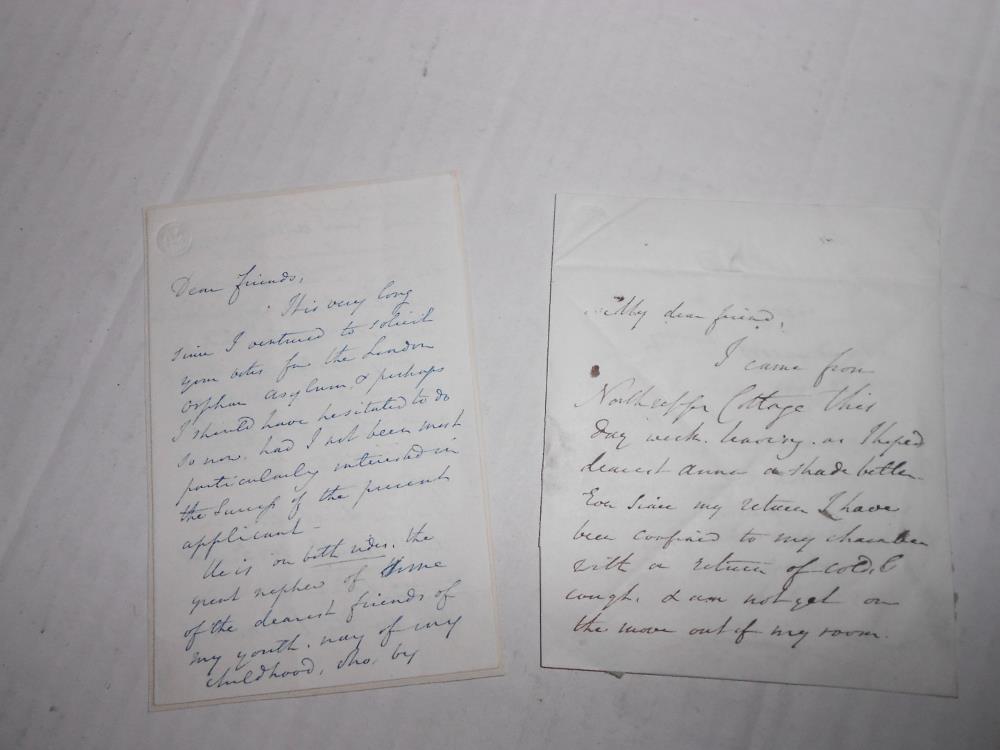 Dear friends,
It is very long
since I ventured to solicit
your votes for the London
orphan asylum, & perhaps
I should have hesitated to do
so now, had I not been most
particularly interested in
the success of the present
applicant -
He is on both sides, the
great nephew of some
of the dearest friends of
my youth, nay of my
childhood, who, by
My dear friend,
I came from
Northrepps Cottage this
day week, leaving, as I hoped
dearest Anna a shade better.
Ever since my return I have
been confined to my chamber
with a return of cold &
cough, & am not yet on
the move out of my room.